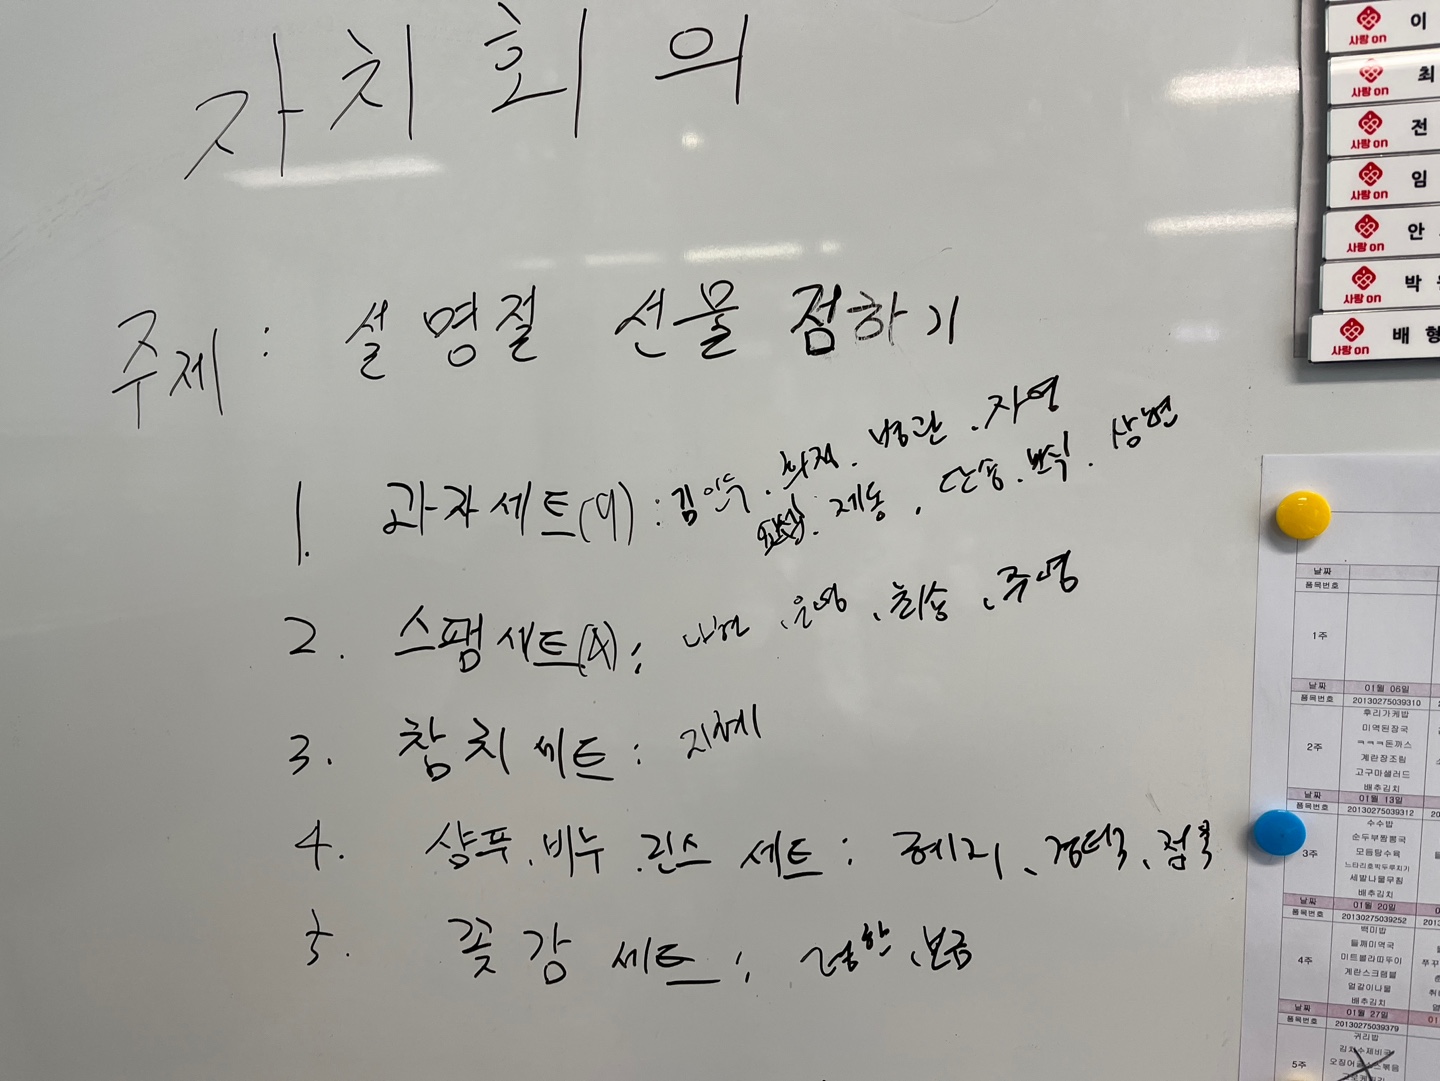 자치회의
주제 : 설명절 선물 점하기
1. 과자세트(9) : 김 . 병관 . 자영
제동 , 단송 . 보식 . 상현
2. 스팸세트(4) : 나현 , 은영 , 희송 , 주영
3. 참치세트 : 지혜
4. 샴푸 . 비누 . 린스 세트 : 혜지 , 경덕 ,
5. 곶감 세트 : 경환 , 보금
사랑on 이
사랑on 최
사랑on 전
사랑on 임
사랑on 안
사랑on 박
사랑on 배 형
날짜
품목번호
1주
날짜 01월 06일
품목번호 20130275039310
2주
후리가케밥
미역된장국
ㅋㅋㅋ돈까스
계란장조림
고구마샐러드
배추김치
날짜 01월 13일
품목번호 20130275039312
3주
수수밥
순두부짬뽕국
모듬탕수육
느타리호박두루치기
세발나물무침
배추김치
날짜 01월 20일
품목번호 20130275039252
4주
백미밥
들깨미역국
미트볼라따뚜이
계란스크램블
얼갈이나물
배추김치
날짜 01월 27일
품목번호 20130275039379
5주
귀리밥